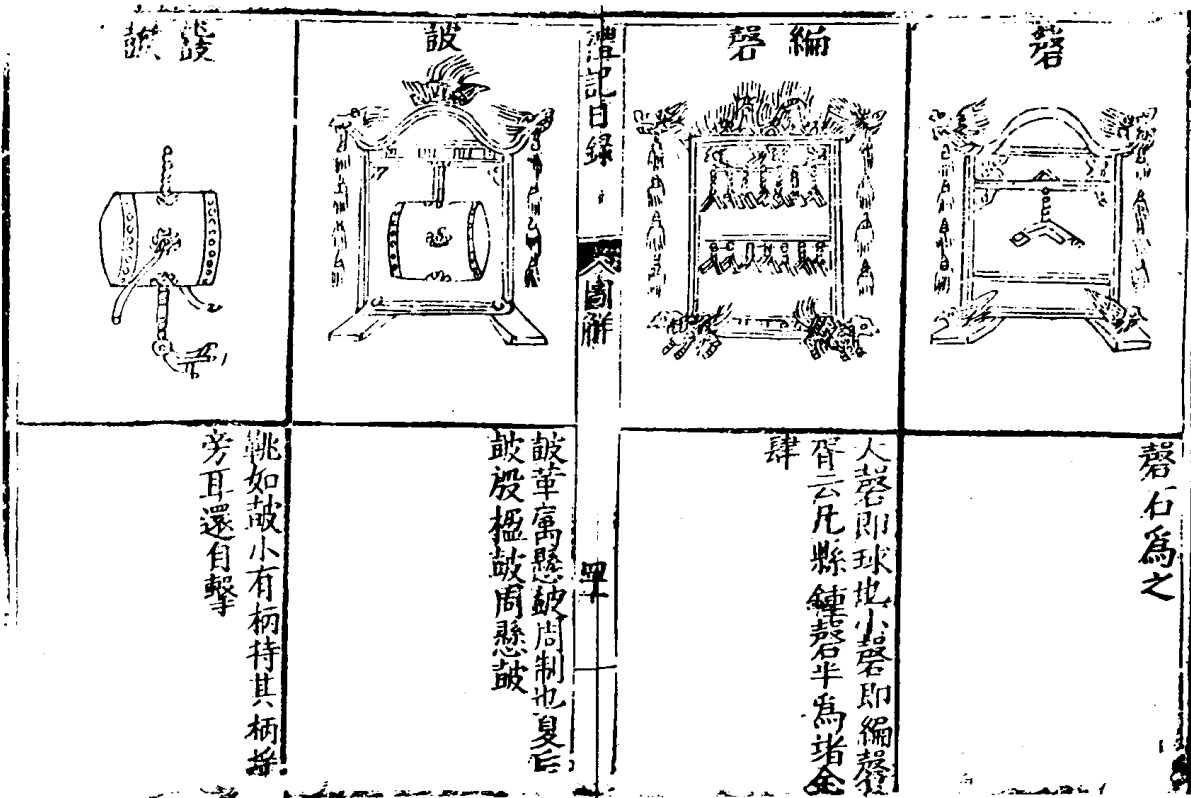 磬
磬石爲之
編磬
大磬即球也小磬即編磬
胥云凡縣鍾磬半爲堵全
肆
禮記目錄
圖解
四十
鼓
鼓革屬懸鼓周制也夏后
鼓殷楹鼓周懸鼓
鼗鼓
鼗如鼓小有柄持其柄搖
旁耳還自擊